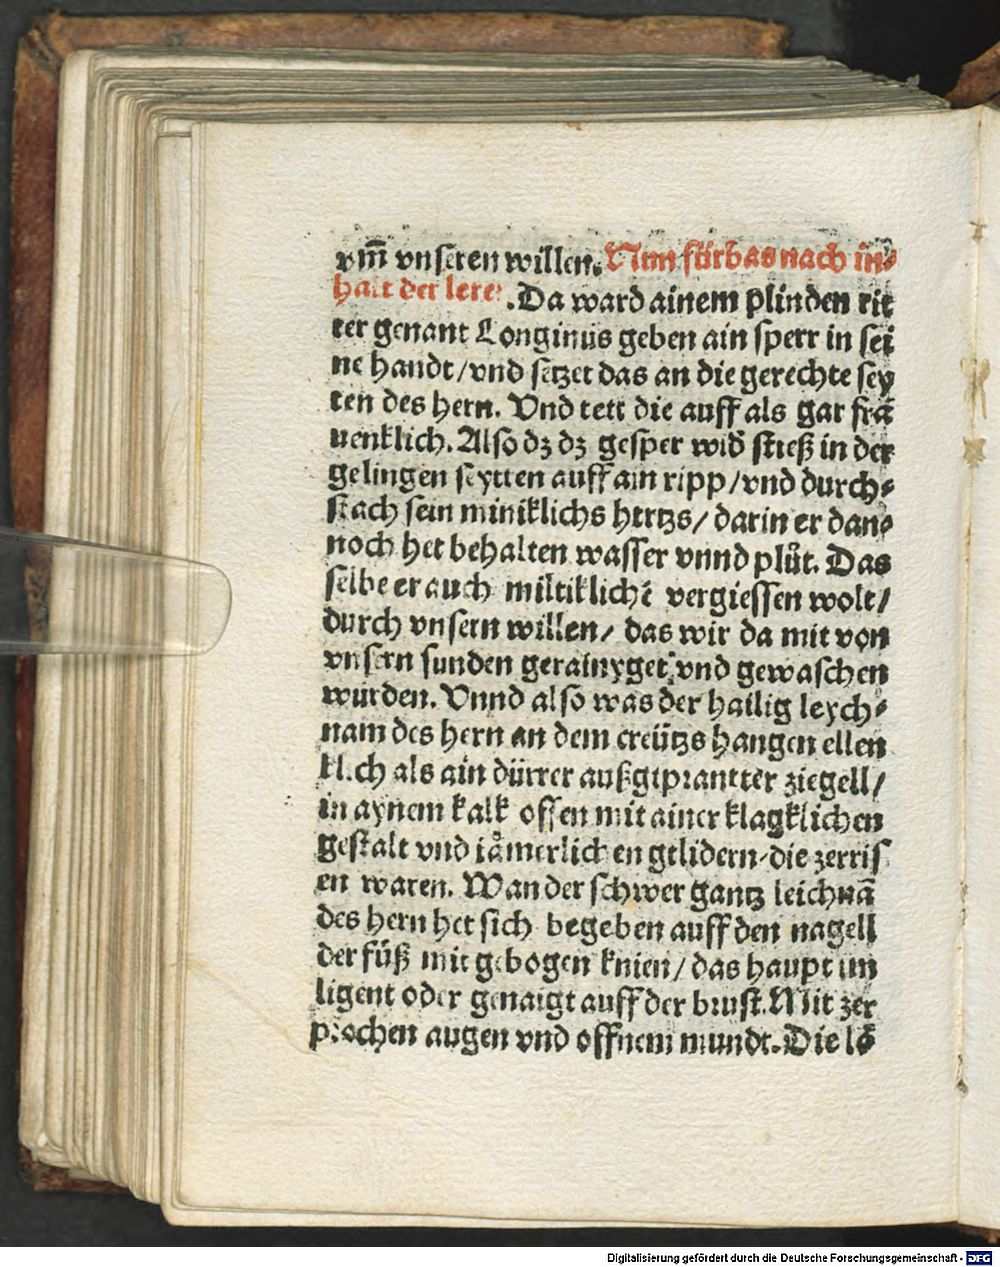 vm̄ vnseren willen. Nun fürbas nach in⸗
halt der lere. Da ward ainem plinden rit
ter genant Longinus geben ain sperr in sei
ne handt/vnd setzet das an die gerechte sey
ten des hern. Vnd tett die auff als gar frā
uenklich. Also dz dz gesper wid̄ stieß in der
gelingen seytten auff ain ripp/vnd durch⸗
stach sein miniklichs hertzs/ darin er dan⸗
noch het behalten wasser vnnd plůt. Das
selbe er auch miltiklichē vergiessen wolt/
durch vnsern willen/ das wir da mit von
vnsern sunden gerainyget vnd gewaschen
wurden. Vnnd also was der hailig leych⸗
nam des hern an dem creützs hangen ellen
klich als ain dürrer außgeprantter ziegell/
in aynem kalk offen mit ainer klagklichen
gestalt vnd iämerlichen gelidern/die zerris
en waren. Wan der schwer gantz leichnā
des hern het sich begeben auff den nagell
der füß mit gebogen knien/ das haupt un
ligent oder genaigt auff der brust. Mit zer
prochen augen vnd offnem mundt. Die lō
Digitalisierung gefördert durch die Deutsche Forschungsgemeinschaft - DFG